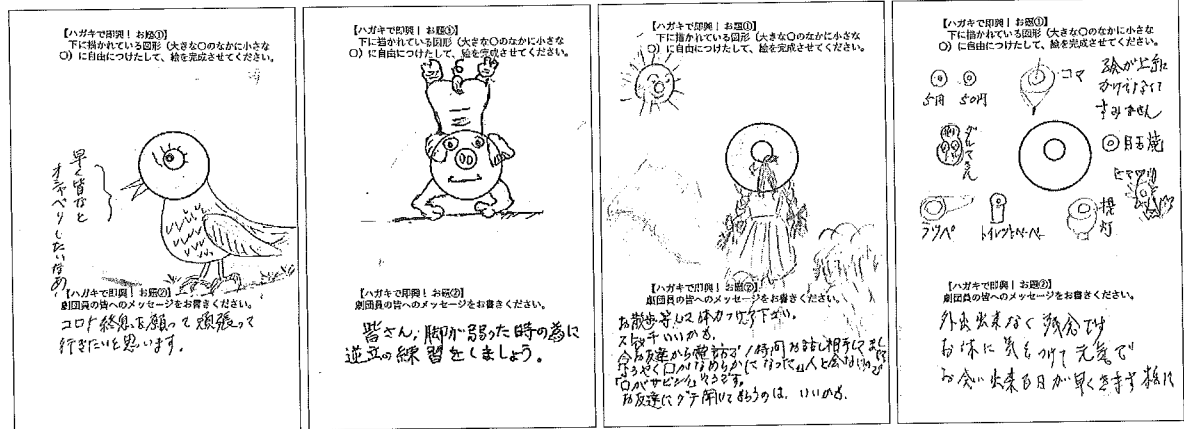 【ハガキで即興！お題①】
下に描かれている図形（大きな〇のなかに小さな
〇）に自由につけたして、絵を完成させてください。
早く皆なと
オシャベリしたいなあ
【ハガキで即興！お題②】
劇団員の皆へのメッセージをお書きください。
コロナ終息を願って頑張って
行きたいと思います。
【ハガキで即興！お題①】
下に描かれている図形（大きな〇のなかに小さな
〇）に自由につけたして、絵を完成させてください。
【ハガキで即興！お題②】
劇団員の皆へのメッセージをお書きください。
皆さん、脚が弱った時の為に
逆立の練習をしましょう。
【ハガキで即興！お題①】
下に描かれている図形（大きな〇のなかに小さな
〇）に自由につけたして、絵を完成させてください。
【ハガキで即興！お題②】
劇団員の皆へのメッセージをお書きください。
お散歩等して体力つけて下さい。
スケッチいいかも。
今お友達から電話で1時間お話し相手して
ようやく口がなめらかになった。人と会ないので
口がサビシイそうです。
お友達にグチ聞いてもらうのは、いいかも。
【ハガキで即興！お題①】
下に描かれている図形（大きな〇のなかに小さな
〇）に自由につけたして、絵を完成させてください。
5円 50円
コマ
絵が上手に
かけなくて
すみません
ダルマさん
目玉焼
ヒマワリ
ラッパ
トイレットペーパー
提灯
【ハガキで即興！お題②】
劇団員の皆へのメッセージをお書きください。
外出出来なく残念です
お体に気をつけて元気で
お会い出来る日が早くきます様に